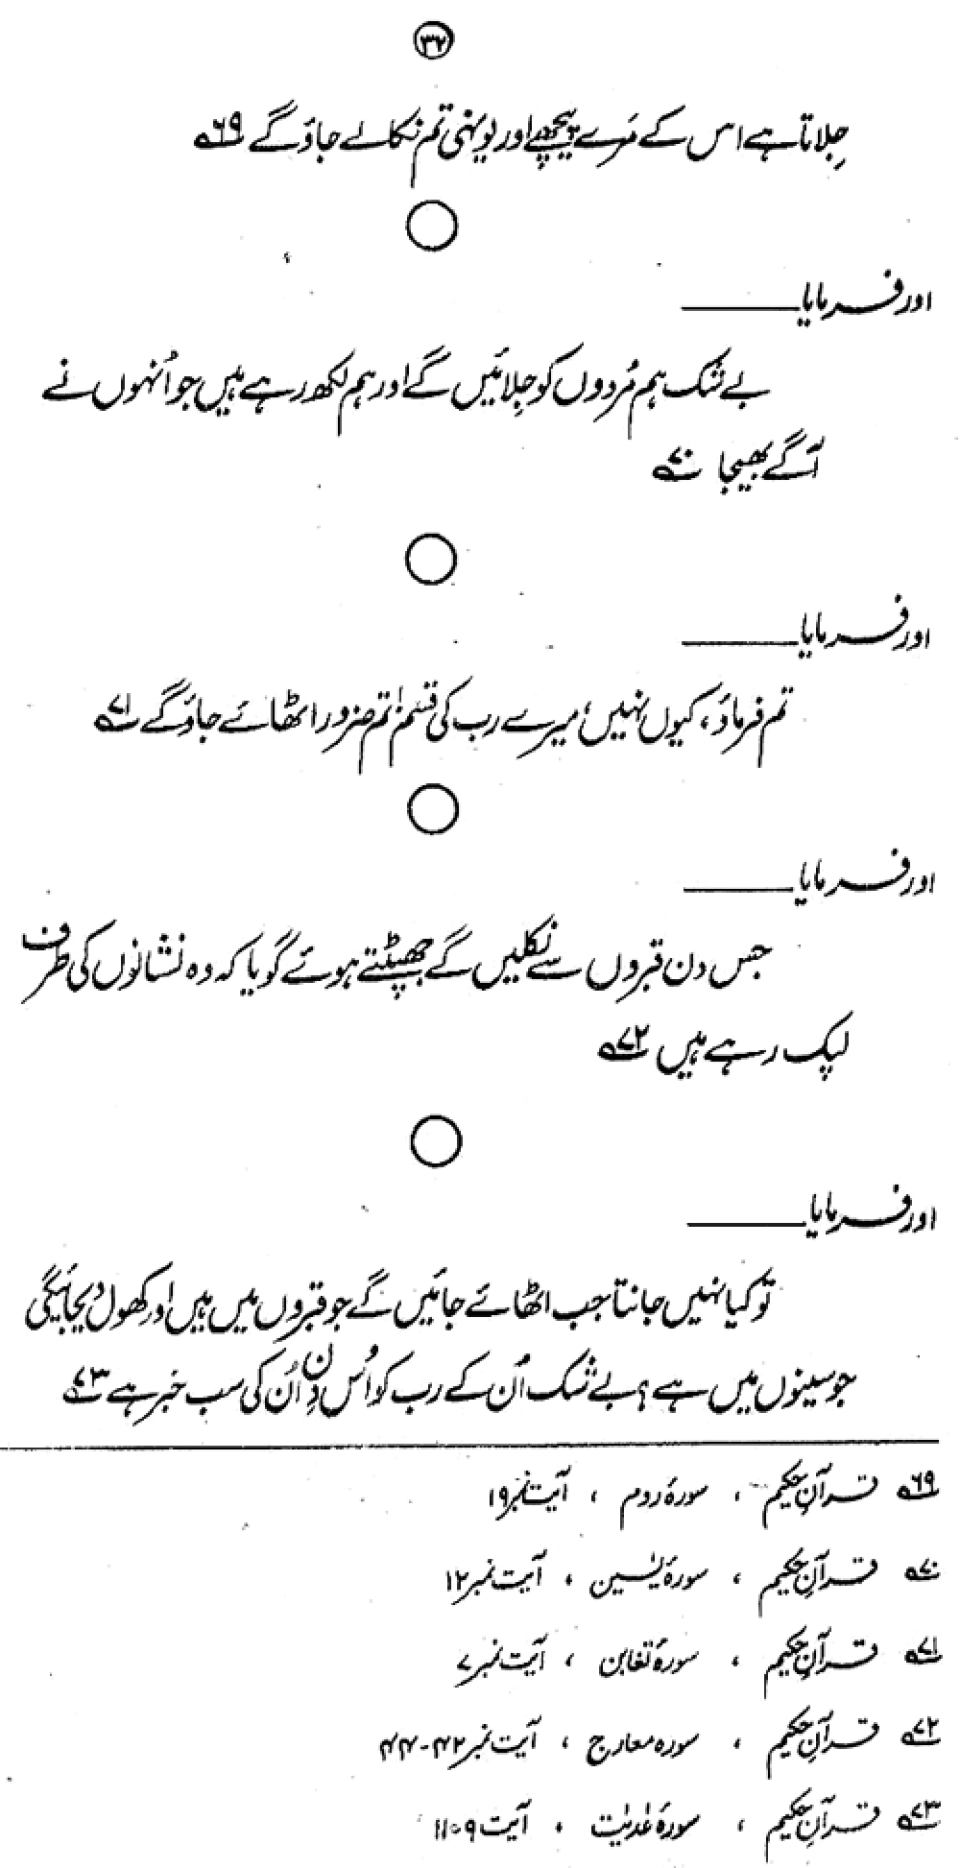 ۳۲
جِلاتا ہے اس کے مَرے پیچھے اور یونہی تم نکالے جاؤ گے ۶۹؎
اور فرمایا ______
بے شک ہم مُردوں کو جِلائیں گے اور ہم لکھ رہے ہیں جو اُنہوں نے
آگے بھیجا ۷۰؎
اور فرمایا ______
تم فرماؤ، کیوں نہیں، میرے رب کی قسم تم ضرور اٹھائے جاؤ گے ۷۱؎
اور فرمایا ______
جس دن قبروں سے نکلیں گے جھپٹتے ہوئے گویا کہ وہ نشانوں کی طرف
لپک رہے ہیں ۷۲؎
اور فرمایا ______
تو کیا نہیں جانتا جب اٹھائے جائیں گے جو قبروں میں ہیں اور کھول دیجائیگی
جو سینوں میں ہے، بے شک اُن کے رب کو اُس دن اُن کی سب خبر ہے ۷۳؎
۶۹؎ قرآن حکیم ، سورۂ روم ، آیت نمبر ۱۹
۷۰؎ قرآن حکیم ، سورۂ یٰسین ، آیت نمبر ۱۲
۷۱؎ قرآن حکیم ، سورۂ تغابن ، آیت نمبر ۷
۷۲؎ قرآن حکیم ، سورہ معارج ، آیت نمبر ۴۲-۴۴
۷۳؎ قرآن حکیم ، سورۂ عٰدیٰت ، آیت ۹-۱۱